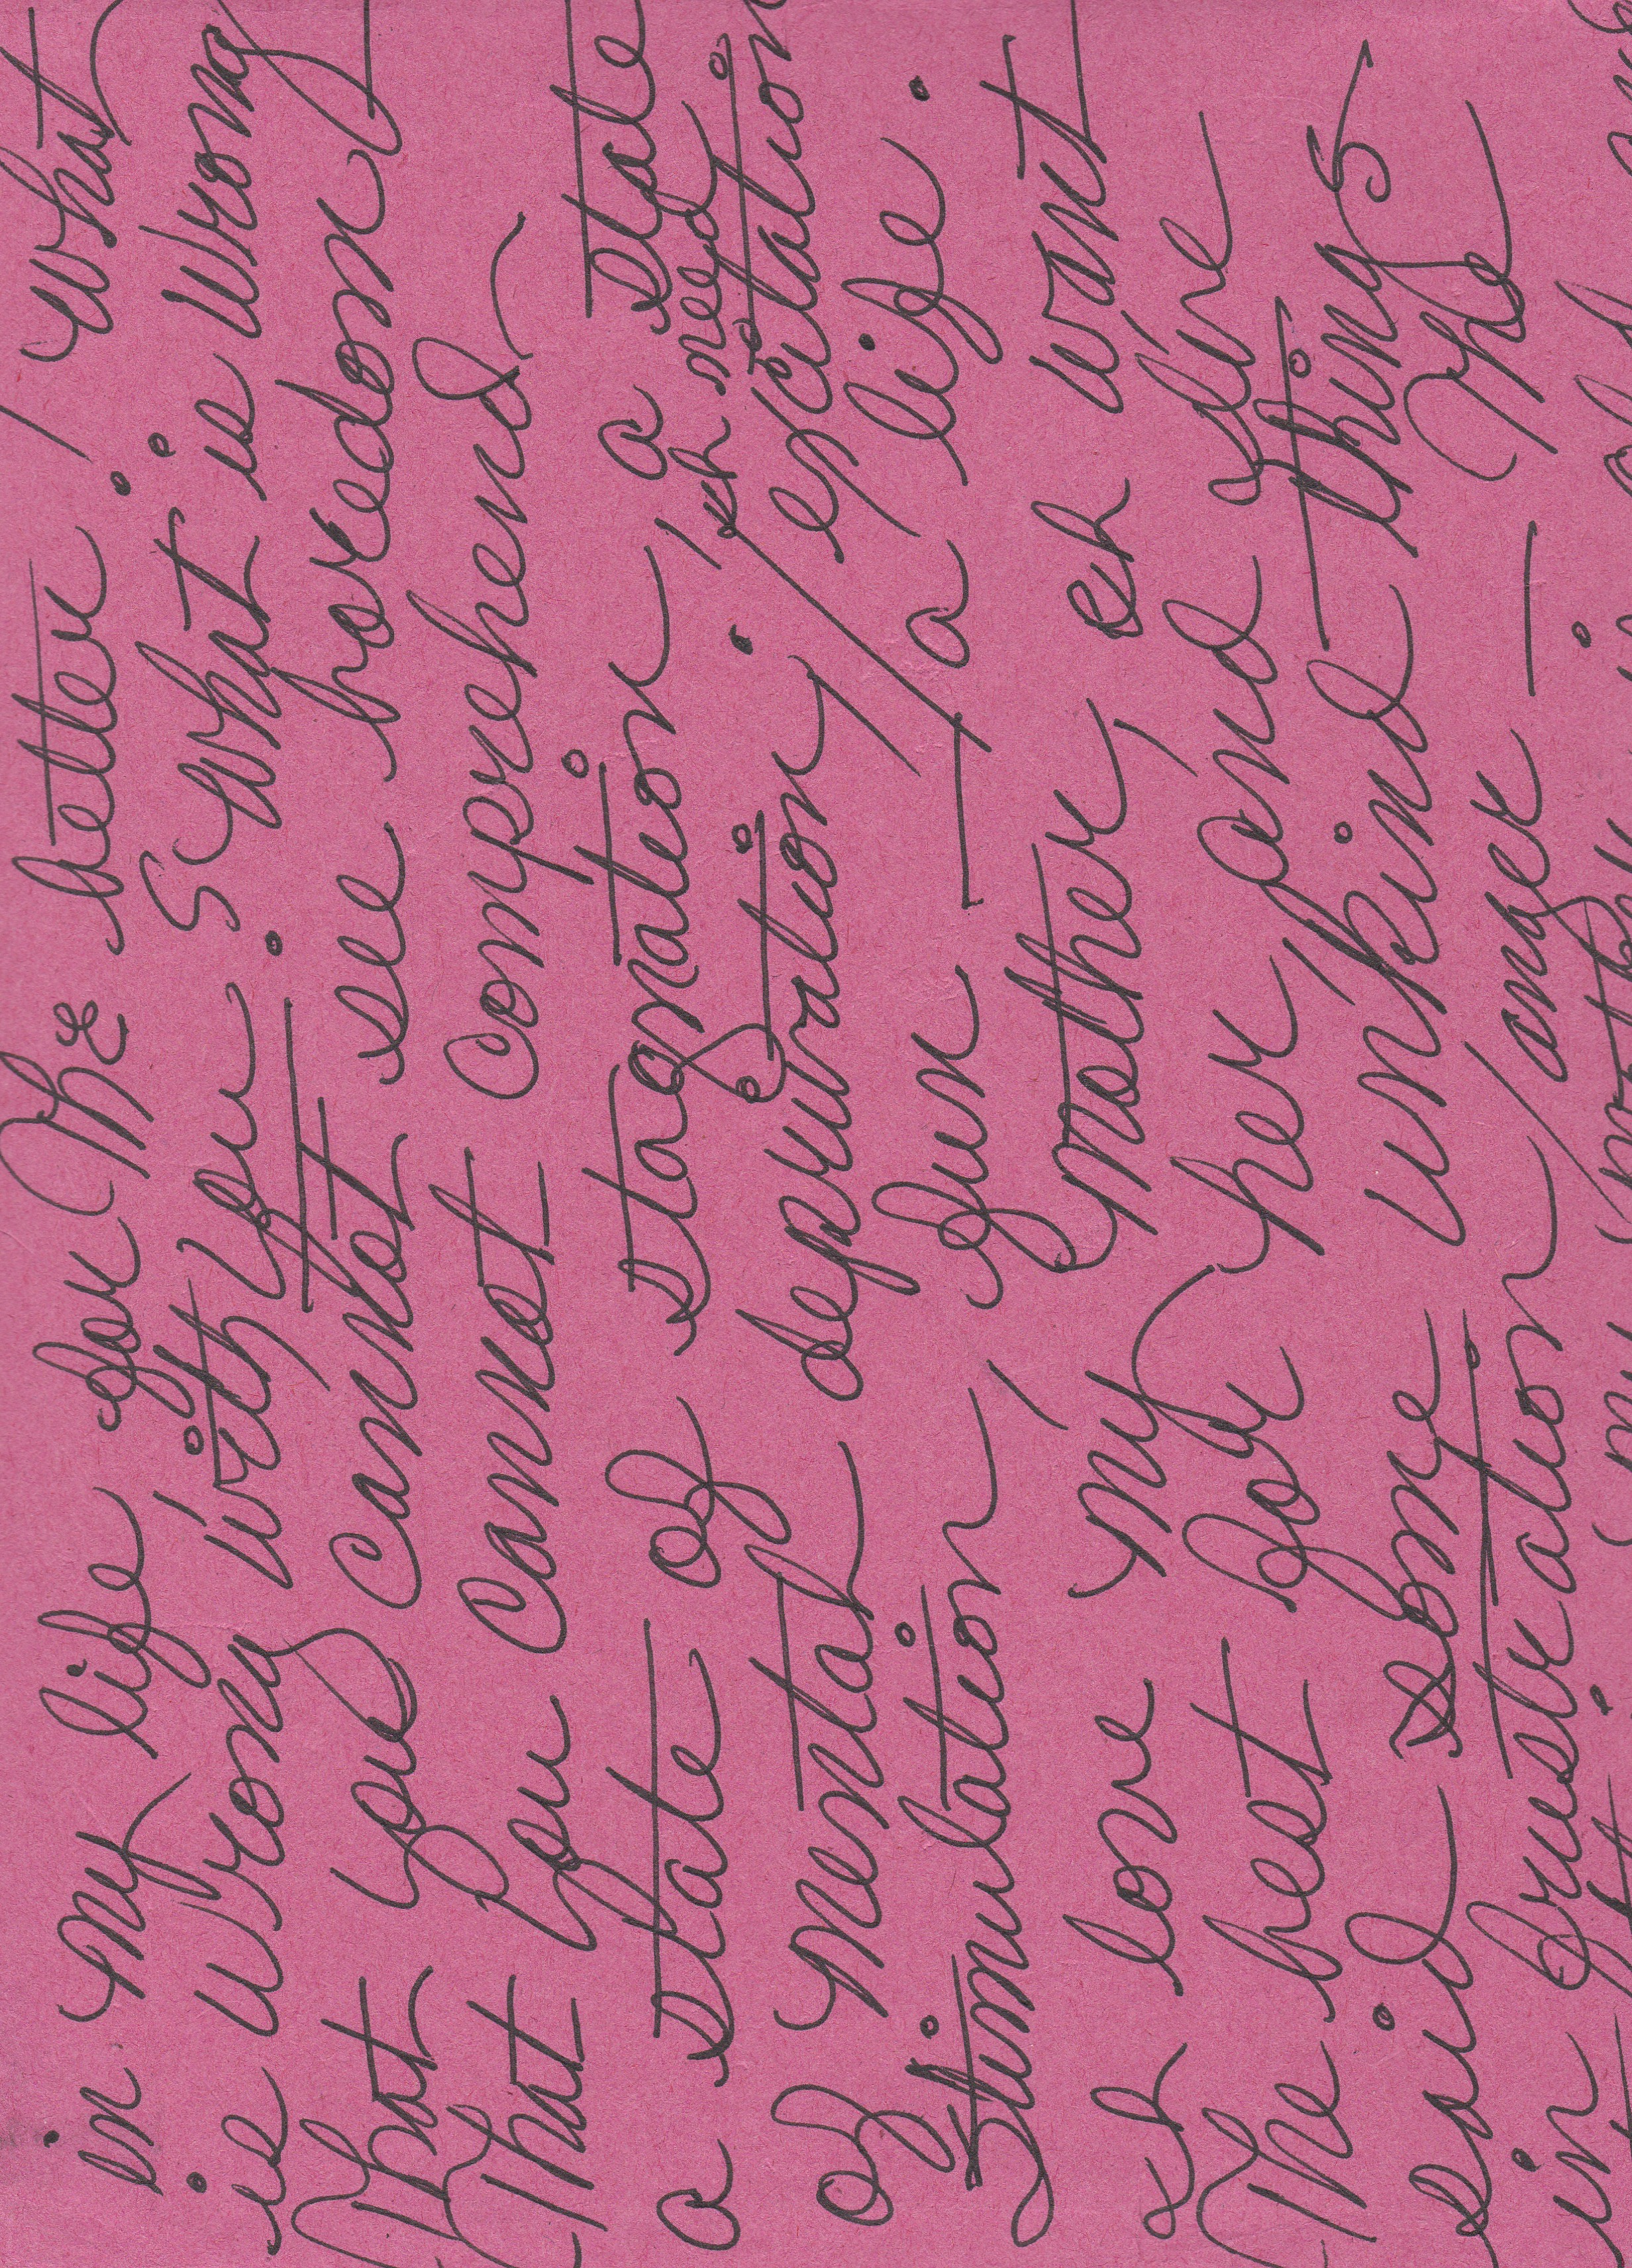 in my life for the better! What
is wrong with you? What is wrong
that you cannot see boredom
that you cannot comprehend
a state of stagnation, a state
of mental deprivation. eh need excitation
stimulation, fun — a life.
eh love my mother, eh want
the best for her and I've
said some unkind things
in frustration/anger — the